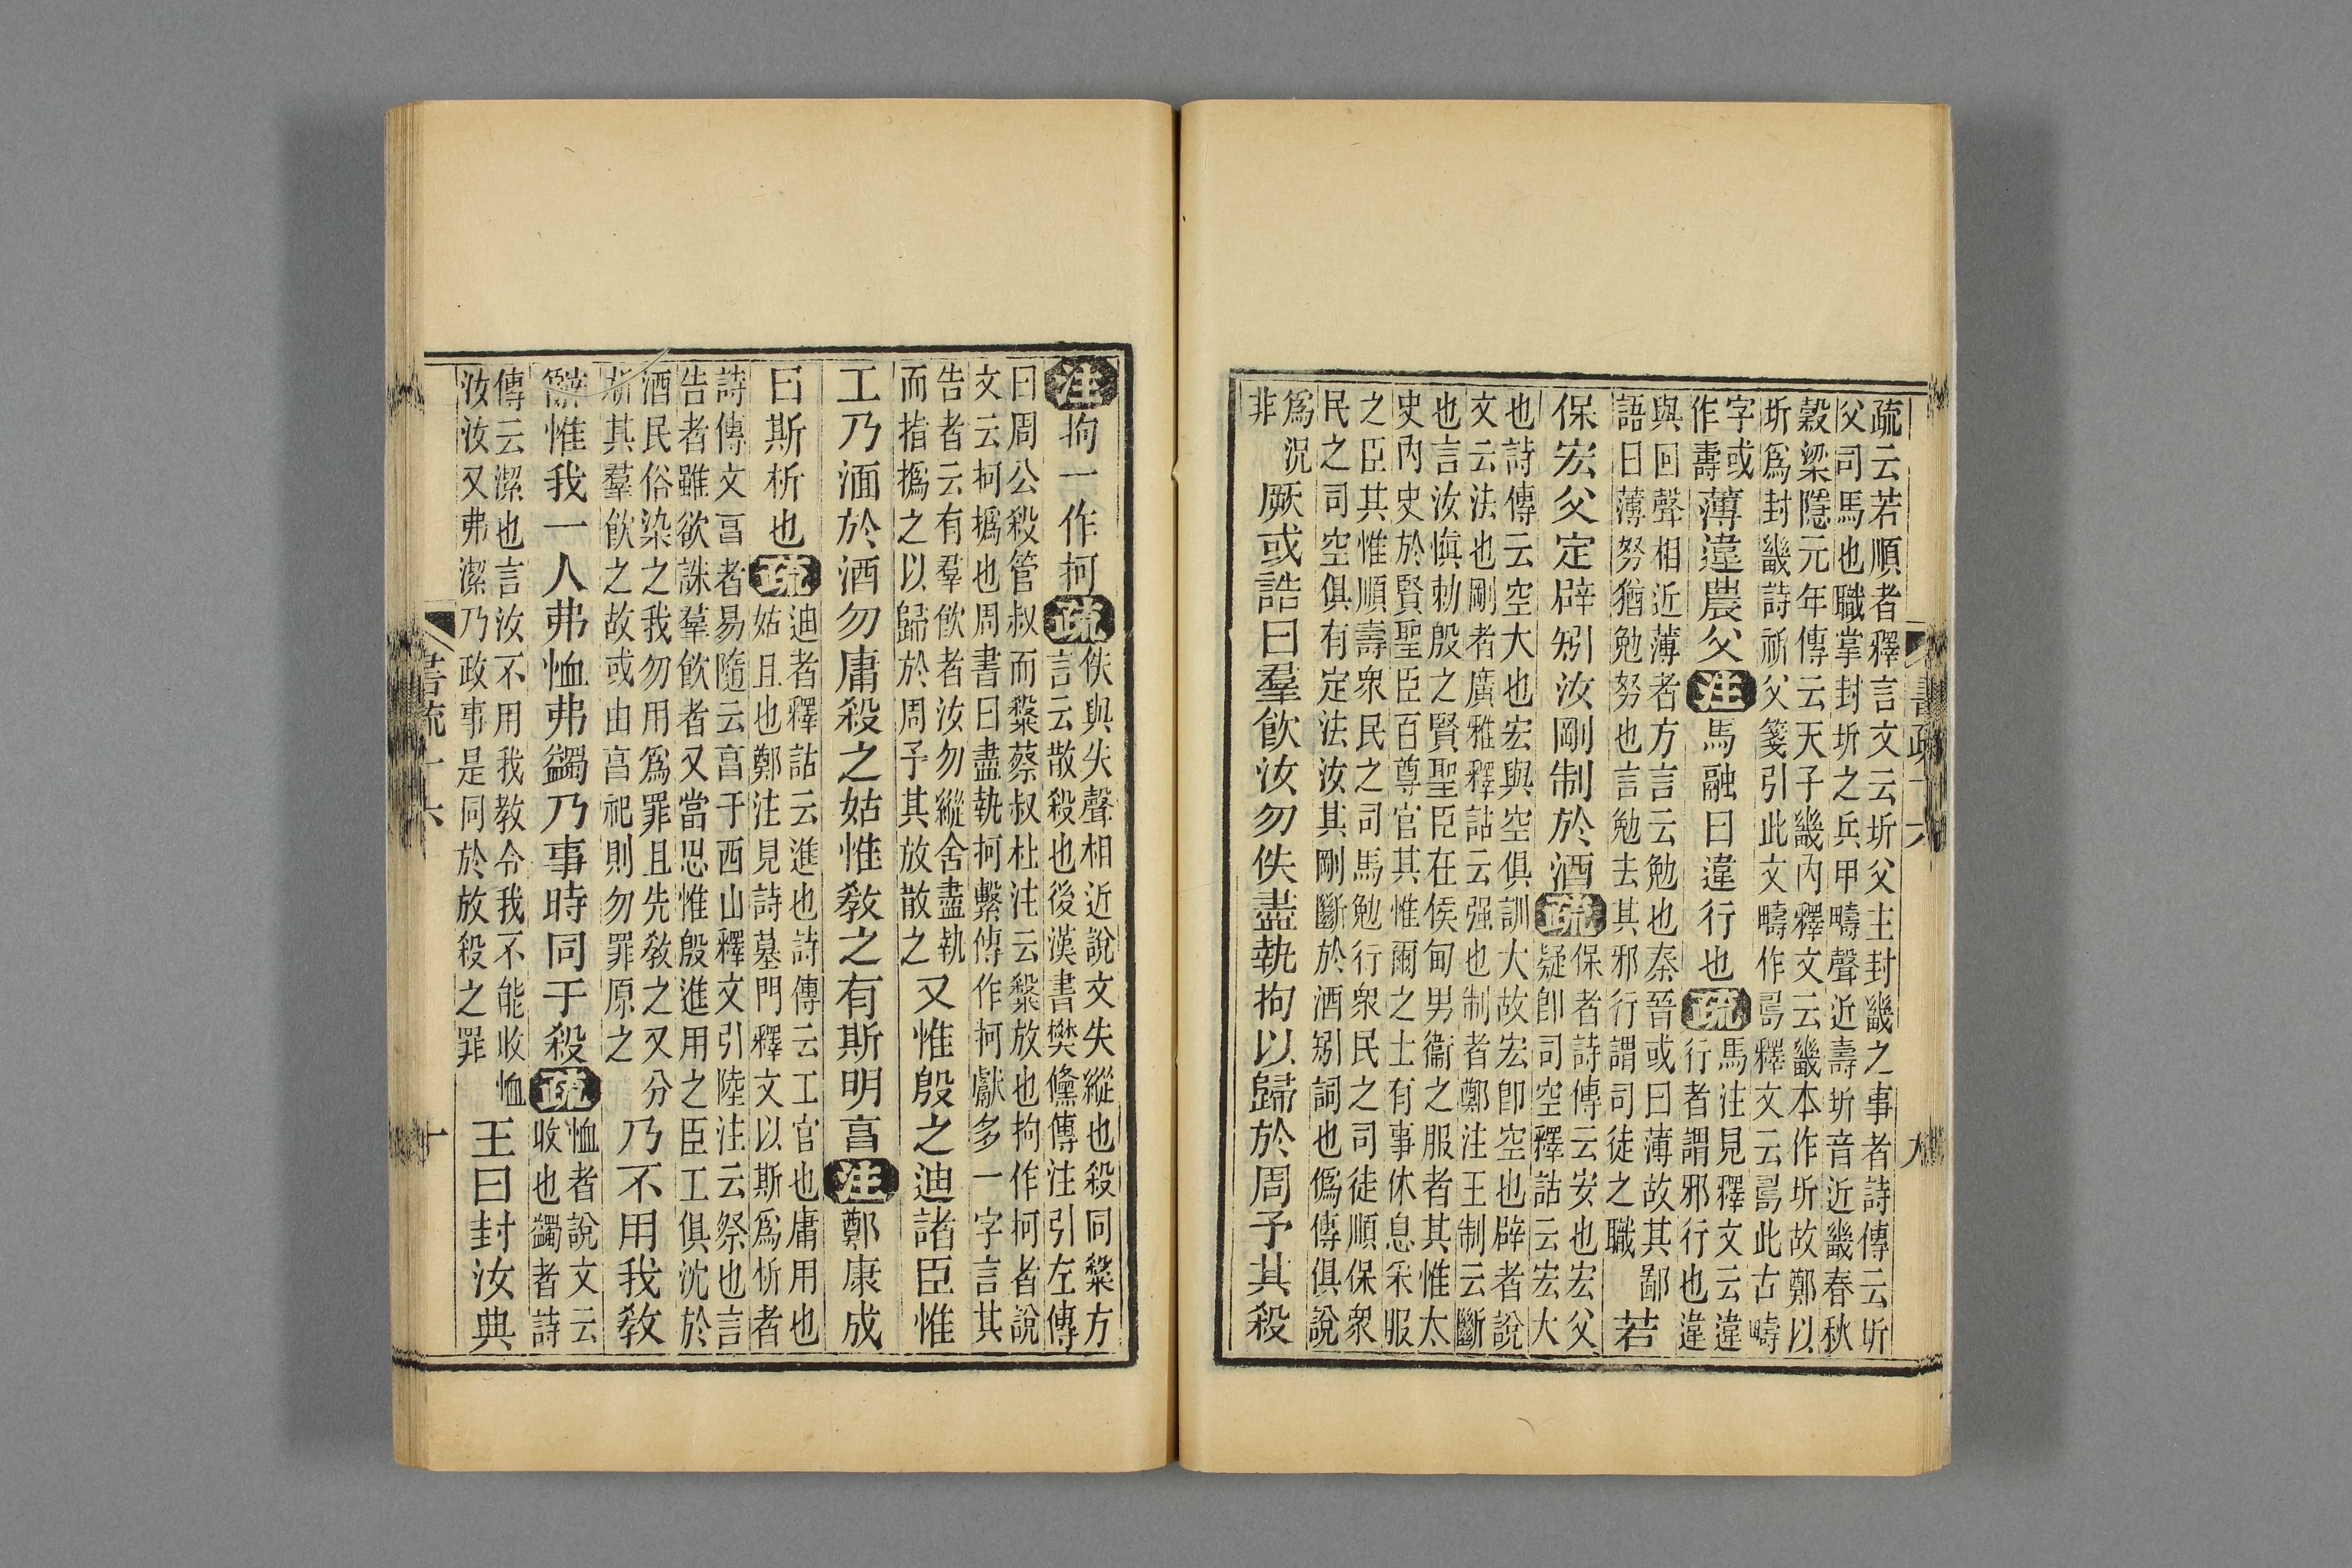 疏云若順者釋言文云圻父主封畿之事者詩傳云圻
父司馬也職掌封圻之兵甲疇聲近壽圻音近畿春秋
穀梁隱元年傳云天子畿內釋文云畿本作圻故鄭以
圻爲封畿詩祈父箋引此文疇作釋文云此古疇
字或
作壽
薄違農父注馬融曰違行也疏
馬注見釋文云違
行者謂邪行也違
與回聲相近薄者方言云勉也秦晉或曰薄故其鄙
語曰薄努猶勉努也言勉去其邪行謂司徒之職
若
保宏父定辟矧汝剛制於酒疏
保者詩傳云安也宏父
疑卽司空釋詁云宏大
也詩傳云空大也宏與空俱訓大故宏卽空也辟者說
文云法也剛者廣雅釋詁云强也制者鄭注王制云斷
也言汝愼勑殷之賢聖臣在侯甸男衞之服者其惟太
史內史於賢聖臣百尊官其惟爾之士有事休息采服
之臣其惟順壽衆民之司馬勉行衆民之司徒順保衆
民之司空俱有定法汝其剛斷於酒矧詞也僞傳俱說
爲況
非
厥或誥曰羣飮汝勿佚盡執拘以歸於周予其殺
書疏十六
九
注拘一作抲疏
佚與失聲相近說文失縱也殺同𥻦方
言云散殺也後漢書樊儵傳注引左傳
曰周公殺管叔而𥻦蔡叔杜注云𥻦放也拘作抲者說
文云抲撝也周書曰盡執抲繫傳作抲獻多一字言其
告者云有羣飮者汝勿縱舍盡執
而指撝之以歸於周予其放散之
又惟殷之迪諸臣惟
工乃湎於酒勿庸殺之姑惟敎之有斯明亯注鄭康成
曰斯析也疏
迪者釋詁云進也詩傳云工官也庸用也
姑且也鄭注見詩墓門釋文以斯爲析者
詩傳文亯者易隨云亯于西山釋文引陸注云祭也言
告者雖欲誅羣飮者又當思惟殷進用之臣工俱沈於
酒民俗染之我勿用爲罪且先敎之又分
析其羣飮之故或由亯祀則勿罪原之
乃不用我敎
辭惟我一人弗恤弗蠲乃事時同于殺疏
恤者說文云
收也蠲者詩
傳云潔也言汝不用我敎令我不能收恤
汝汝又弗潔乃政事是同於放殺之罪
王曰封汝典
書疏十六
十